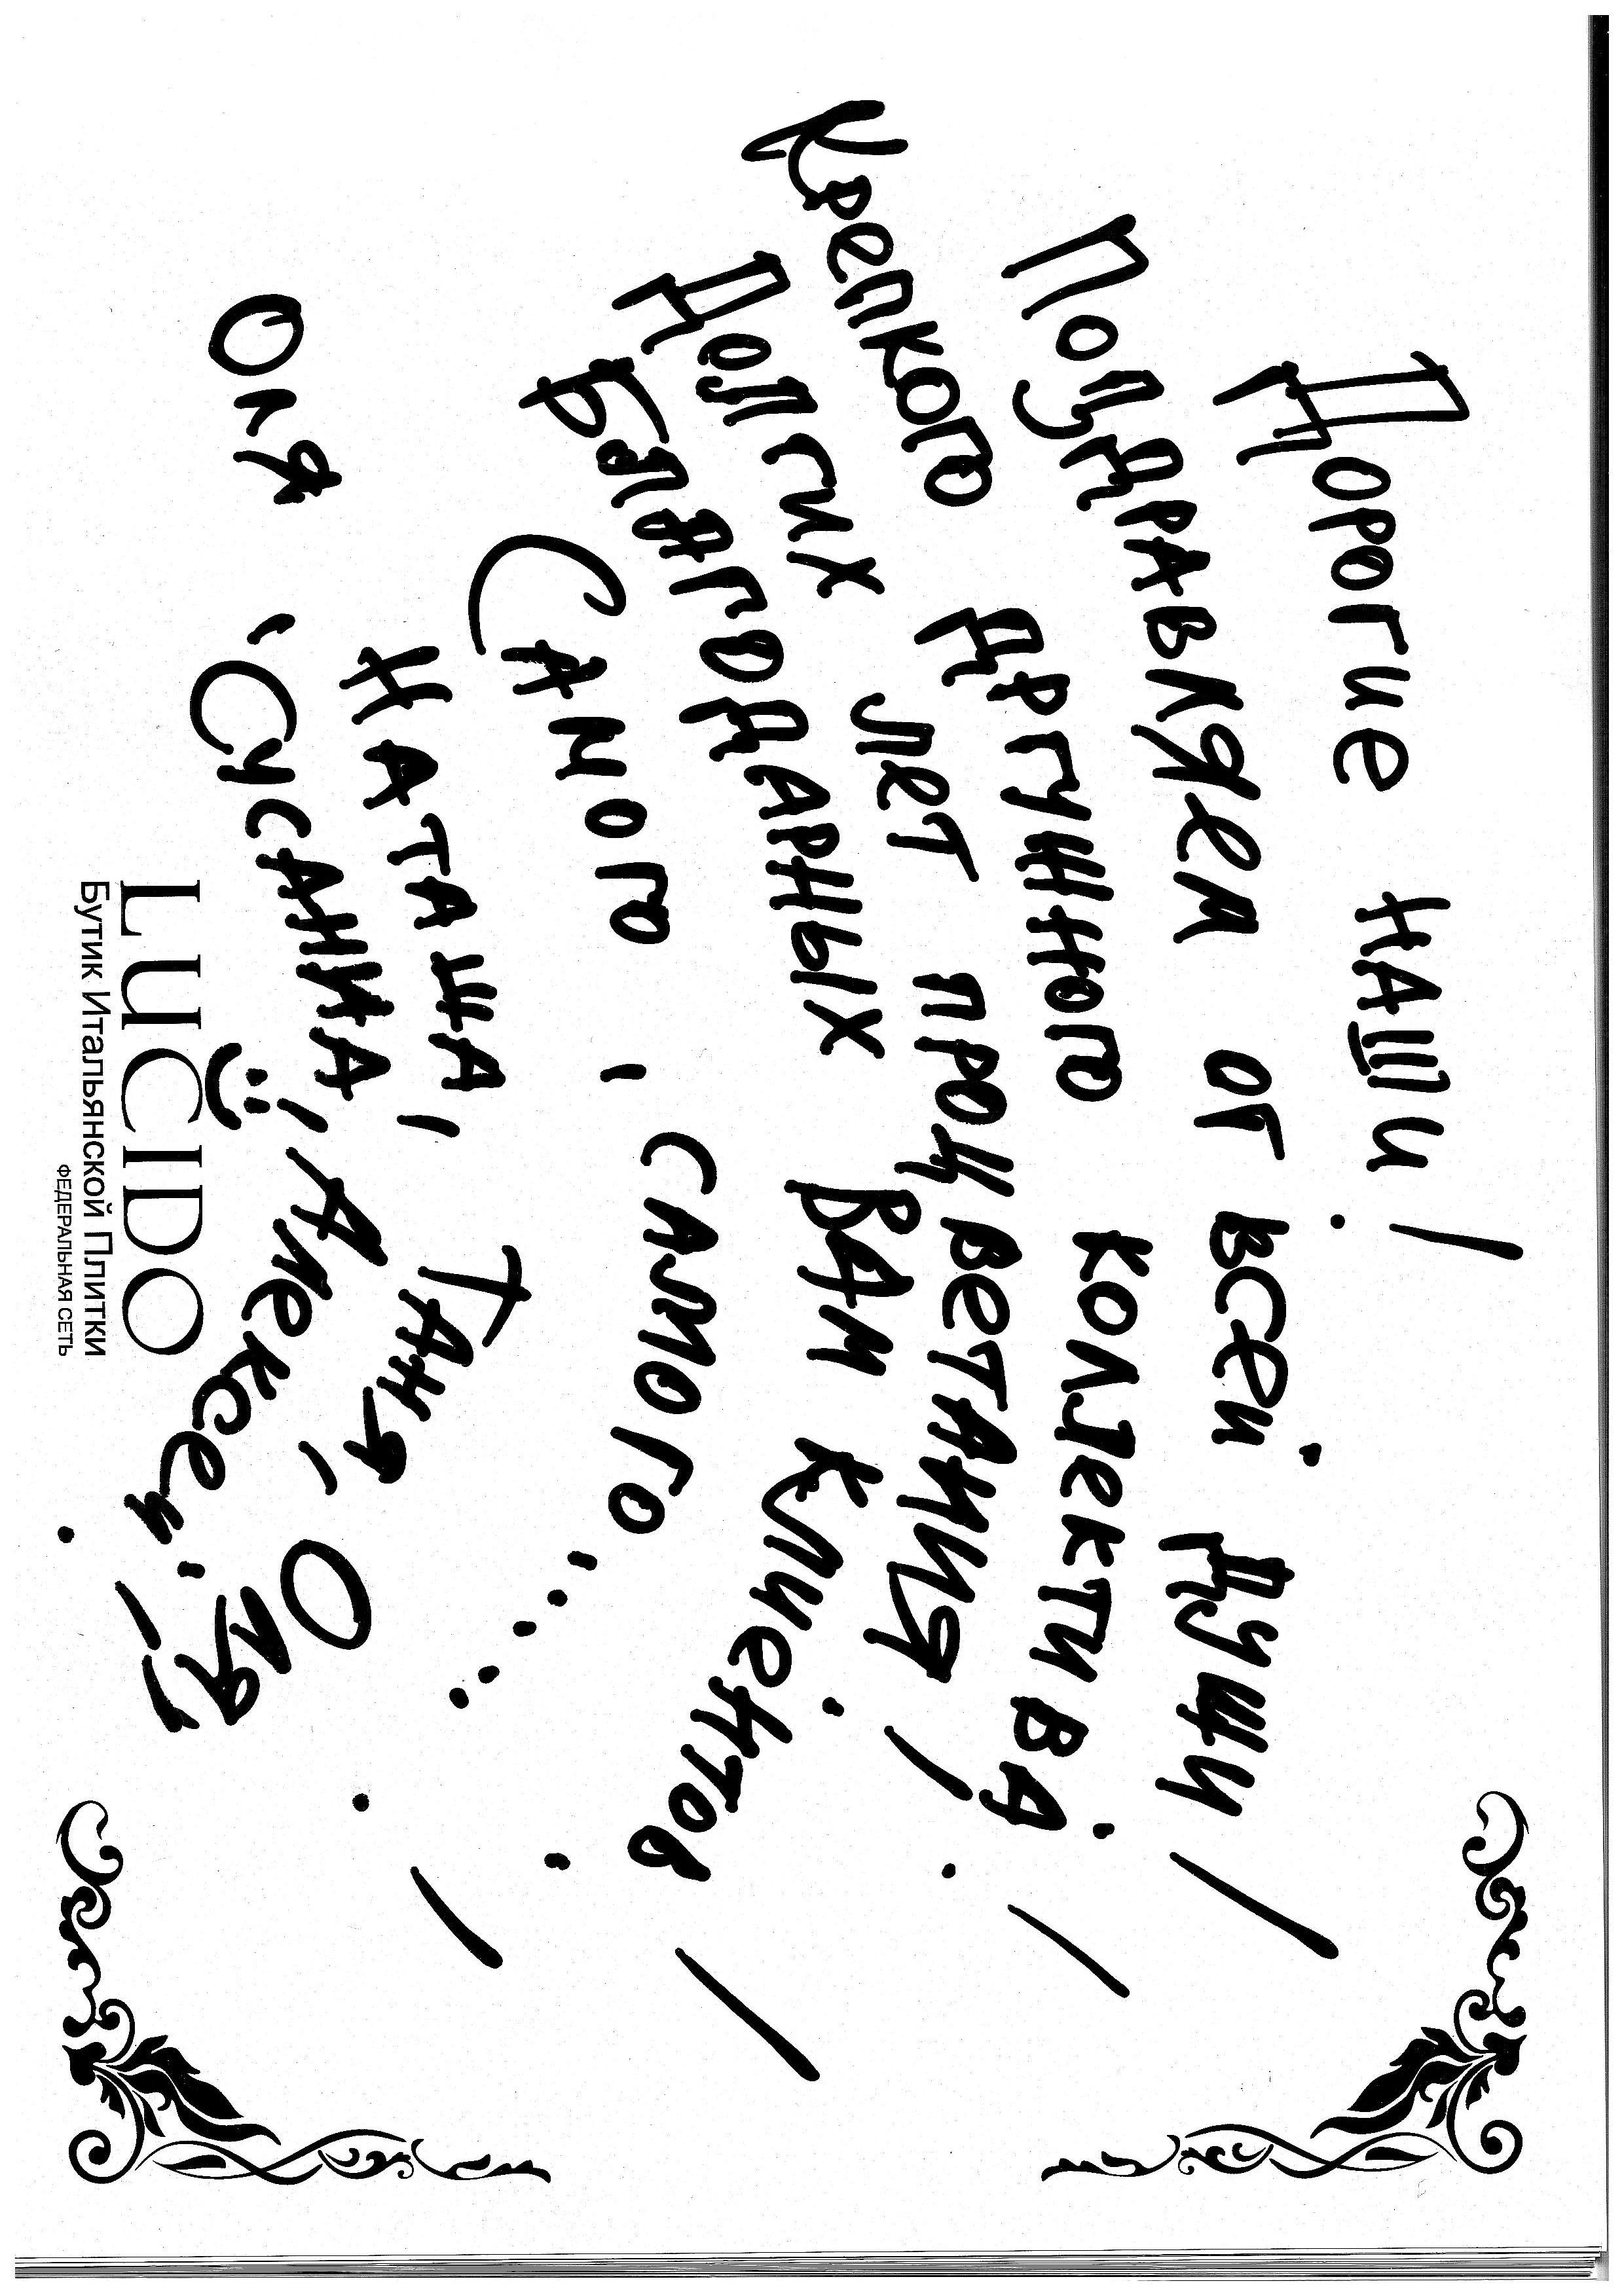 Дорогие наши!
Поздравляем от всей души!
Крепкого дружного коллектива!
Долгих лет процветания!
Благодарных Вам клиентов!
Самого, самого.....!
Наташа, Таня, Оля,
Оля, Сусанна, Алексей!
:)
LUCIDO
Бутик Итальянской Плитки
ФЕДЕРАЛЬНАЯ СЕТЬ